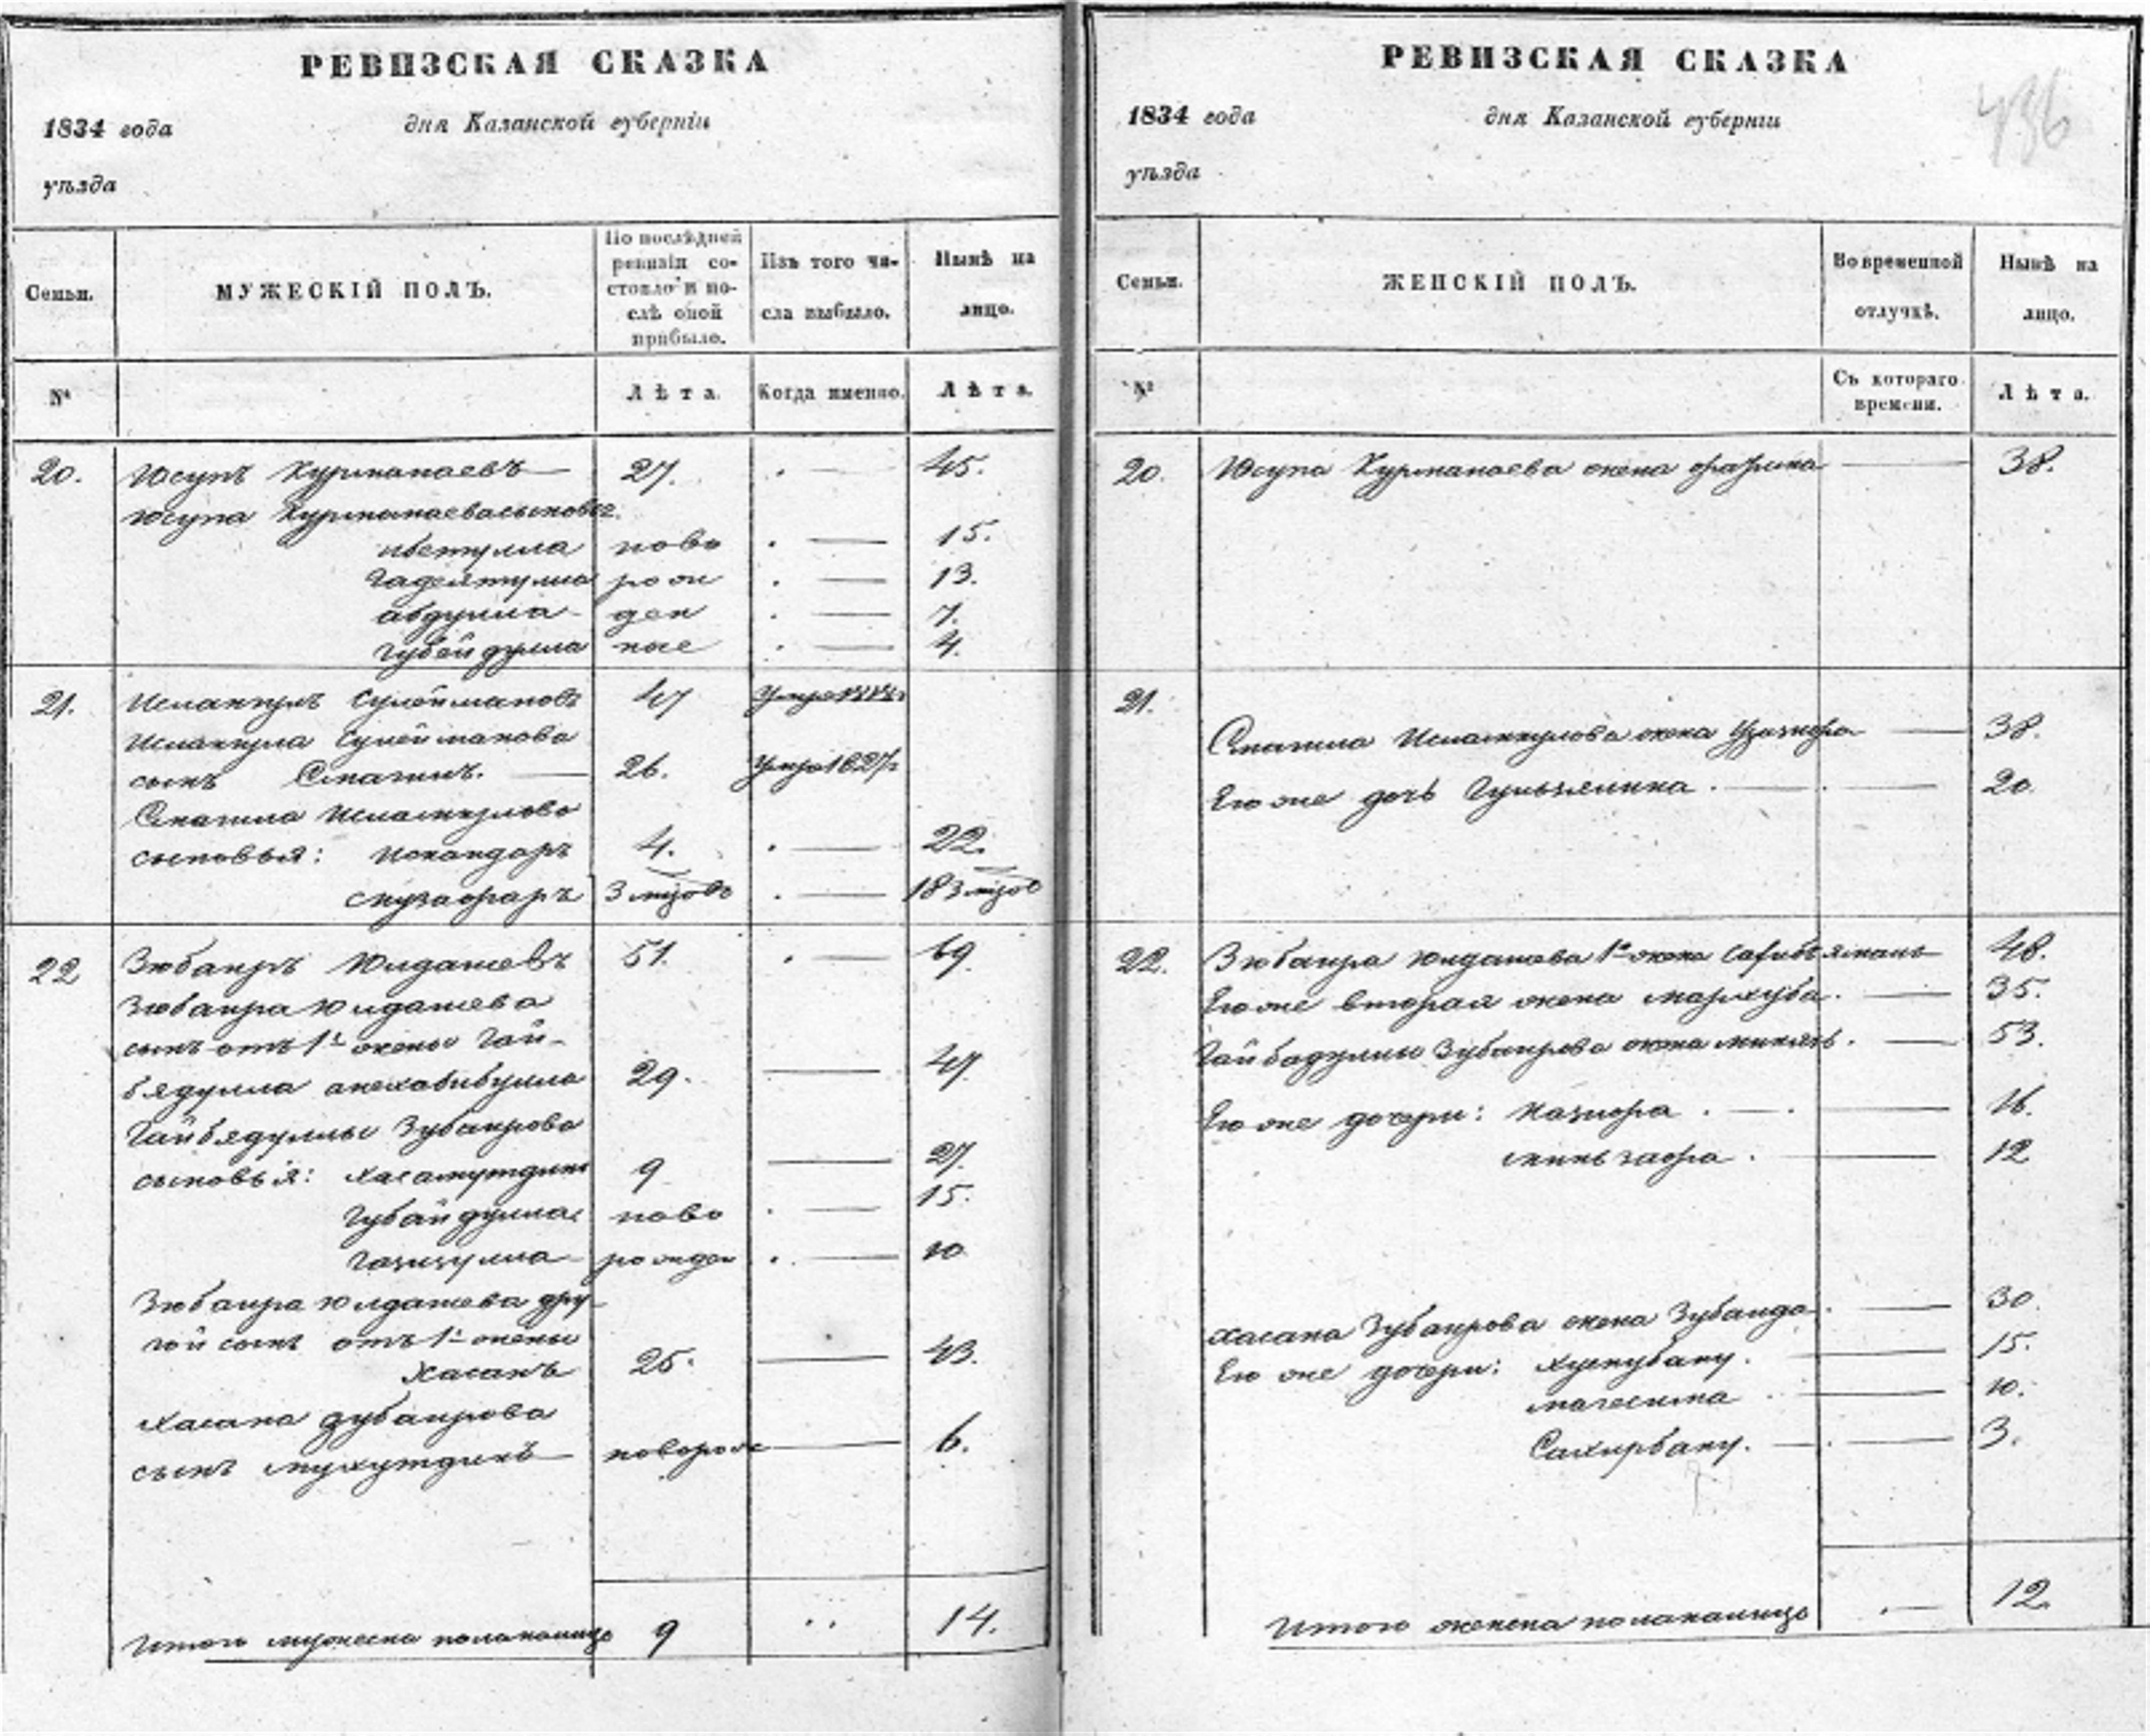 РЕВИЗСКАЯ СКАЗКА
1834 года дня Казанской губерніи
уѣзда
Семьи. МУЖЕСКІЙ ПОЛЪ. По послѣдней ревизіи состояло и послѣ оной прибыло. Изъ того числа выбыло. Нынѣ на лицо.
№ Лѣта. Когда именно. Лѣта.
20. Юсупъ Курманаевъ 27. 45.
Юсупа Курманаева сыновья
ново 15.
рож 13.
абдулла ден 7.
Губейдулла ные 4.
21. Исламкулъ Сулеймановъ 47
Исламкула Сулейманова
сынъ Смагилъ. 26. умре 1827г
Смагила Исламкулова
сыновья: Искандаръ 4. 22.
Музафаръ 3 мѣсяцов 18 3 мѣсяцов
22 Зюбаиръ Юлдашевъ 51. 69.
Зюбаира Юлдашева
сынъ отъ 1й жены Гай-
бядулла онже хабибулла 29. 47.
Гайбядуллы Зубаирова
сыновья: Хасамутдинъ 9 27.
Губайдулла ново 15.
Газизулла рожден 10
Зюбаира Юлдашева дру-
гой сынъ отъ 1й жены
Хасанъ 25. 43.
Хасана Зубаирова
сынъ Мухутдинъoворож 6.
Итого мужеска пола налицо 9 14.
РЕВИЗСКАЯ СКАЗКА
436
1834 года дня Казанской губерніи
уѣзда
Семьи. ЖЕНСКІЙ ПОЛЪ. Во временной отлучкѣ. Нынѣ на лицо.
№ Съ котораго времени. Лѣта.
20. Юсупа Курманаева жена 38.
21.
Смагила Исламкулова жена 38.
Его же дочь Гульзямина. 20.
22. Зюбаира Юлдашева 1я жена 48.
Его же вторая жена Мархуба. 35.
Гайбадуллы Зубаирова жена 53.
Его же дочери: Назифа. 16.
12
Хасана Зубаирова жена Зубаида. 30.
Его же дочери: 15.
10.
Сахирбану. 3.
Итого женска пола налицо 12.